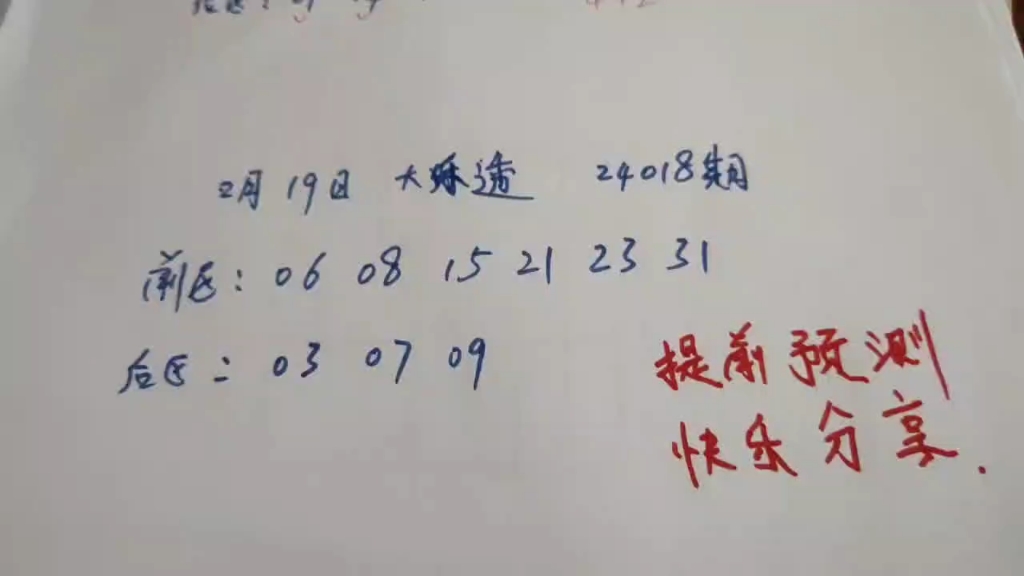 2月19日 大乐透 24018期
前区: 06 08 15 21 23 31
后区: 03 07 09
提前预测
快乐分享.